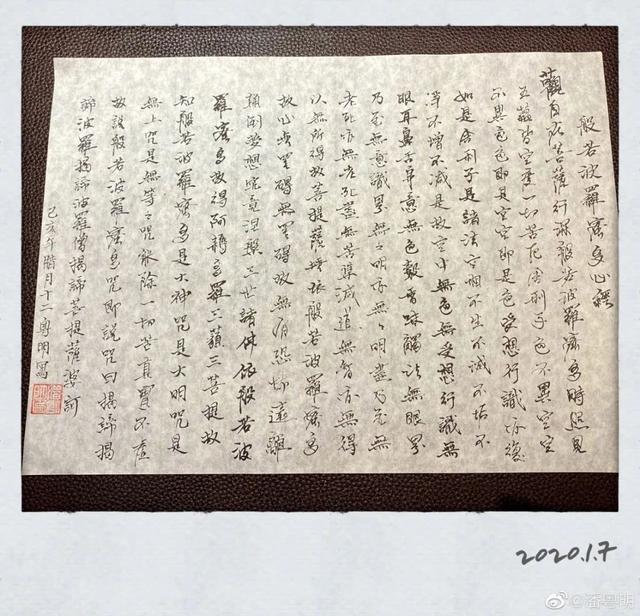 般若波羅蜜多心經
觀自在菩薩行深般若波羅蜜多時照見
五蘊皆空度一切苦厄舍利子色不異空空
不異色色即是空空即是色受想行識亦復
如是舍利子是諸法空相不生不滅不垢不
淨不增不減是故空中無色無受想行識無
眼耳鼻舌身意無色聲香味觸法無眼界
乃至無意識界無無明亦無無明盡乃至無
老死亦無老死盡無苦集滅道無智亦無得
以無所得故菩提薩埵依般若波羅蜜多
故心無罣礙無罣礙故無有恐怖遠離
顛倒夢想究竟涅槃三世諸佛依般若波
羅蜜多故得阿耨多羅三藐三菩提故
知般若波羅蜜多是大神咒是大明咒是
無上咒是無等々咒能除一切苦真實不虛
故說般若波羅蜜多咒即說咒曰揭諦揭
諦波羅揭諦波羅僧揭諦菩提薩婆訶
己亥年腊月十二粵明寫
2020.1.7
@潘粵明